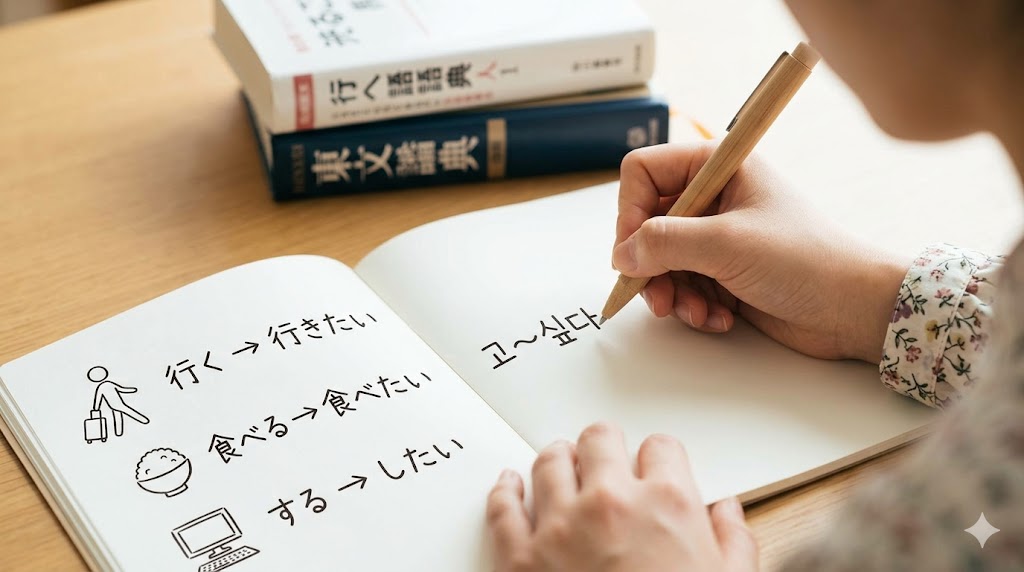 行へ語語典 人 1
東文語典
行く → 行きたい
食べる → 食べたい
する → したい
고~싶다